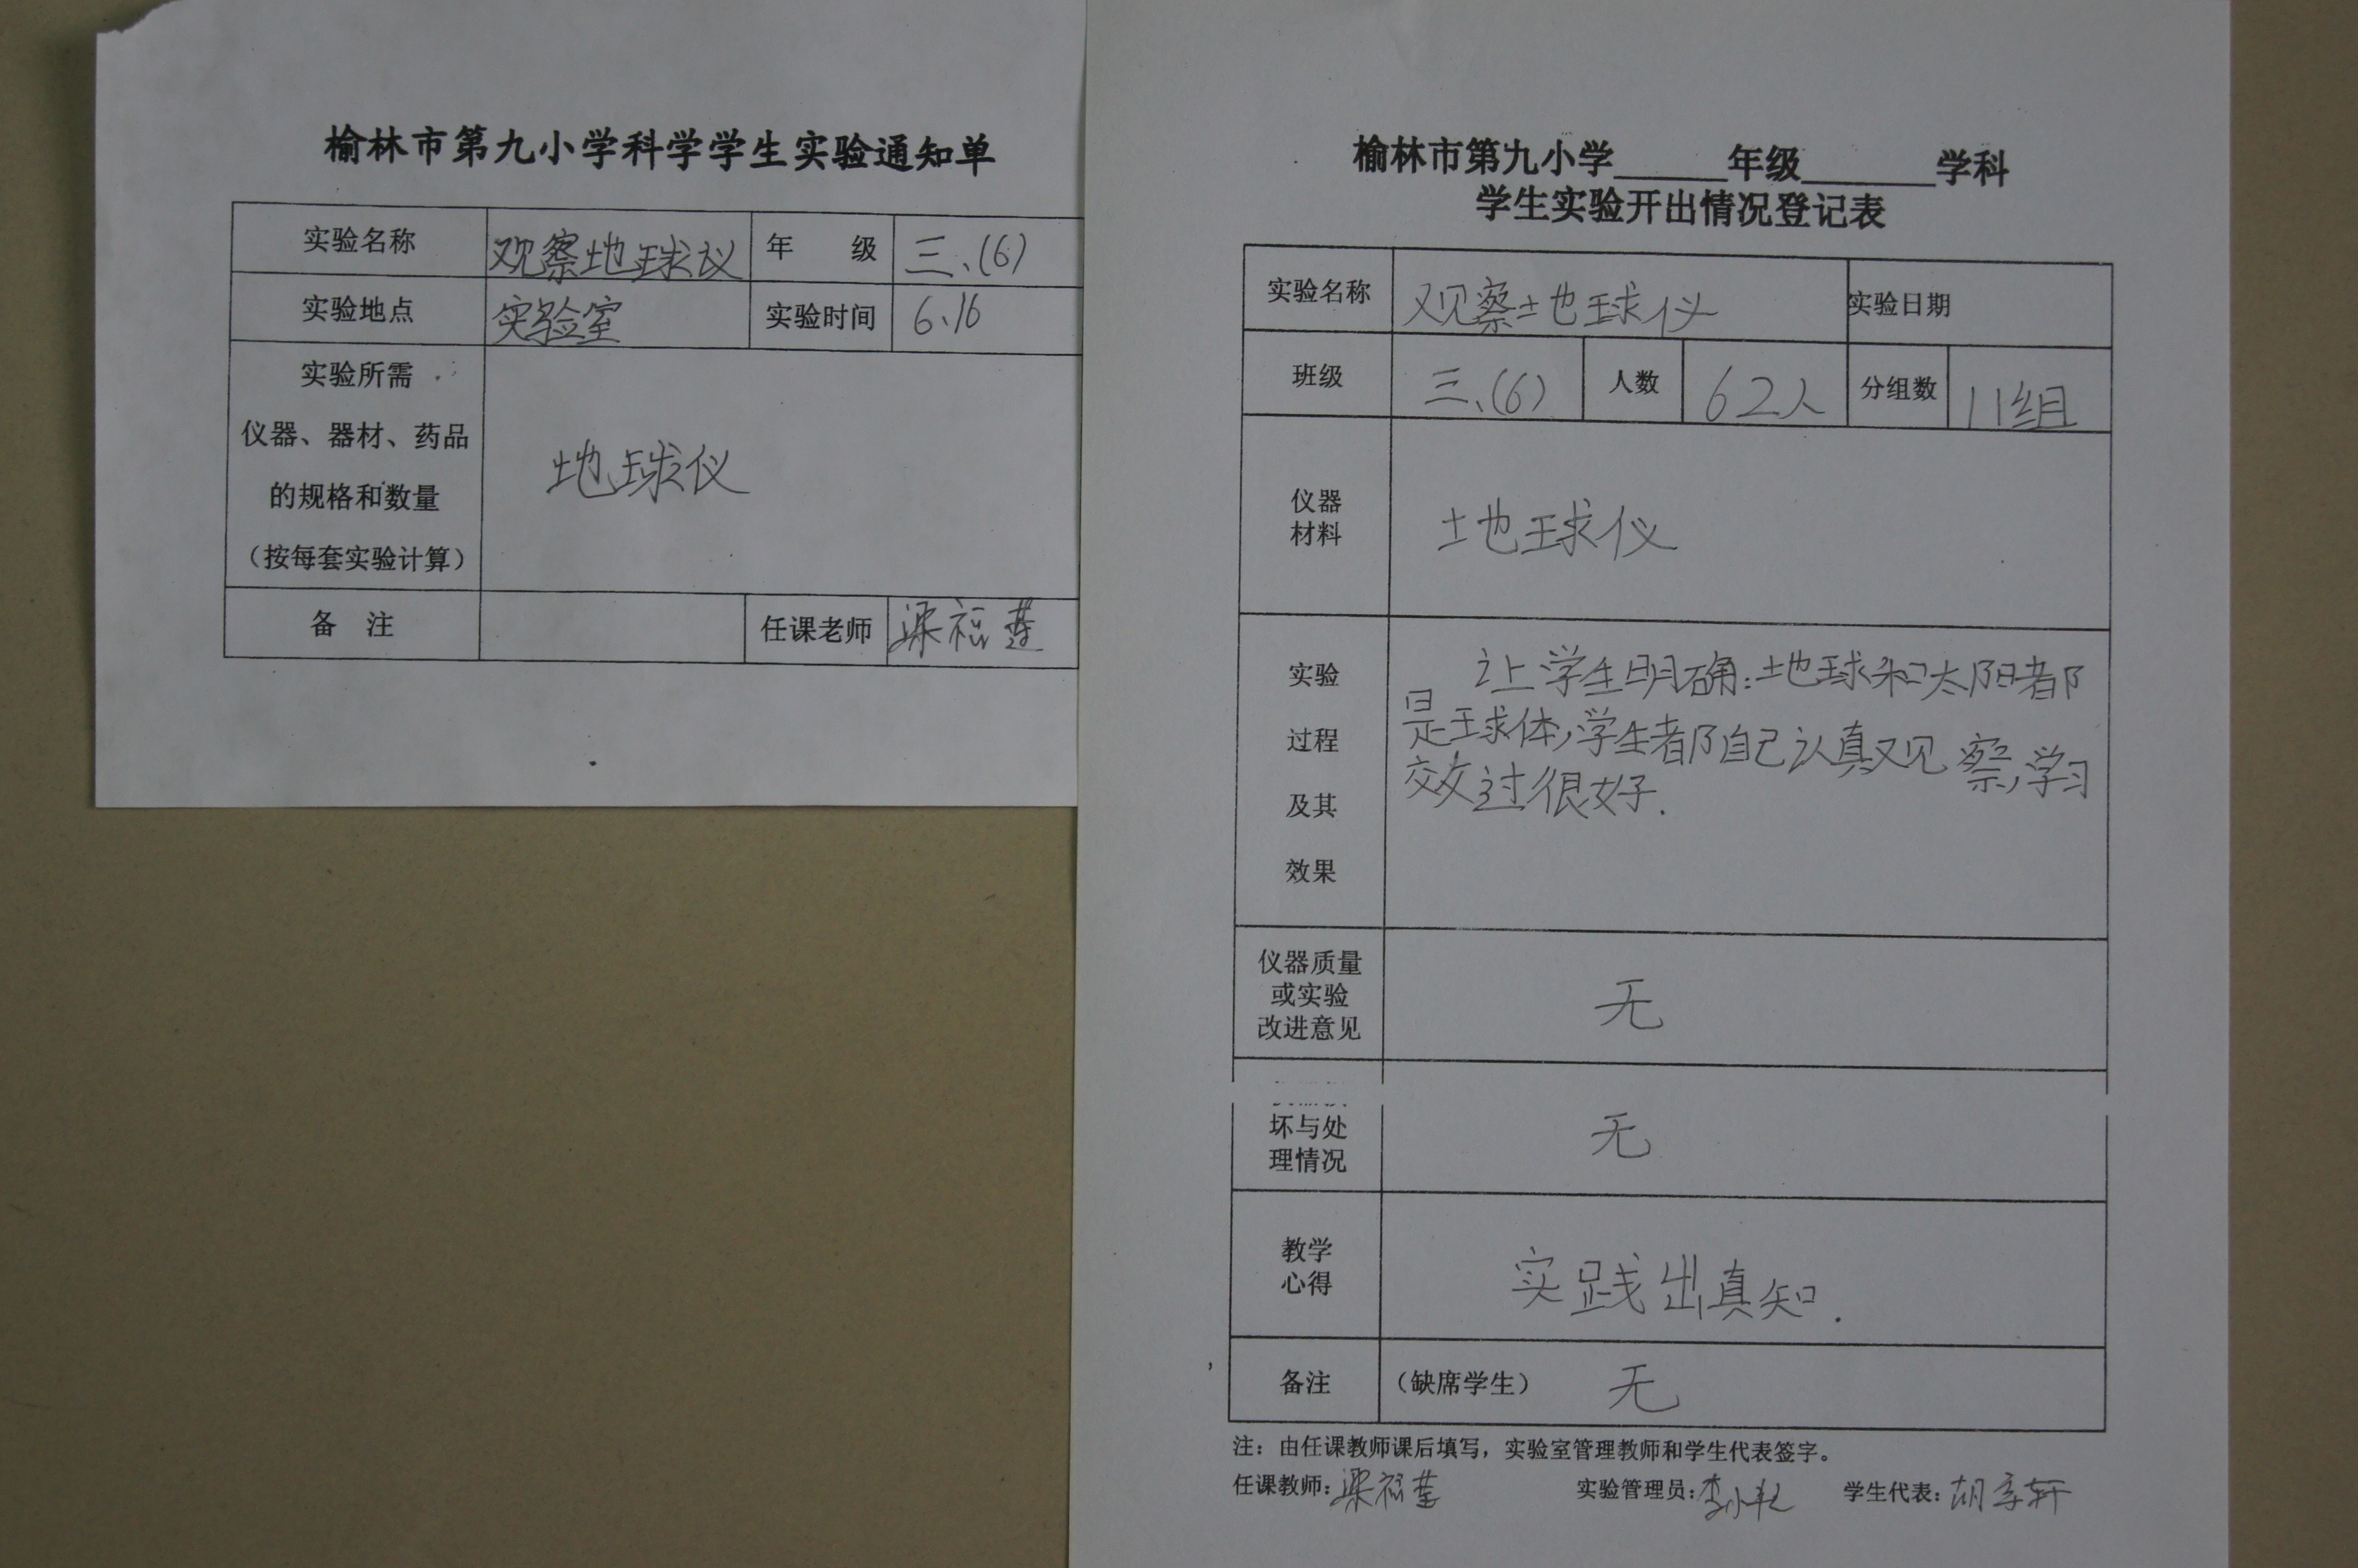 榆林市第九小学科学学生实验通知单
实验名称 观察地球仪 年 级 三、(6)
实验地点 实验室 实验时间 6.16
实验所需
仪器、器材、药品
的规格和数量
(按每套实验计算)
地球仪
备 注 任课老师 梁福莲
榆林市第九小学______年级______学科
学生实验开出情况登记表
实验名称 观察地球仪 实验日期
班级 三、(6) 人数 62人 分组数 11组
仪器
材料
地球仪
实验
过程
及其
效果
让学生明确:地球和太阳都
是球体,学生都自己认真观察,学习
效过很好.
仪器质量
或实验
改进意见
无
坏与处
理情况
无
教学
心得
实践出真知.
备注 (缺席学生) 无
注:由任课教师课后填写,实验室管理教师和学生代表签字。
任课教师:梁福莲 实验管理员:李小 学生代表:胡 轩